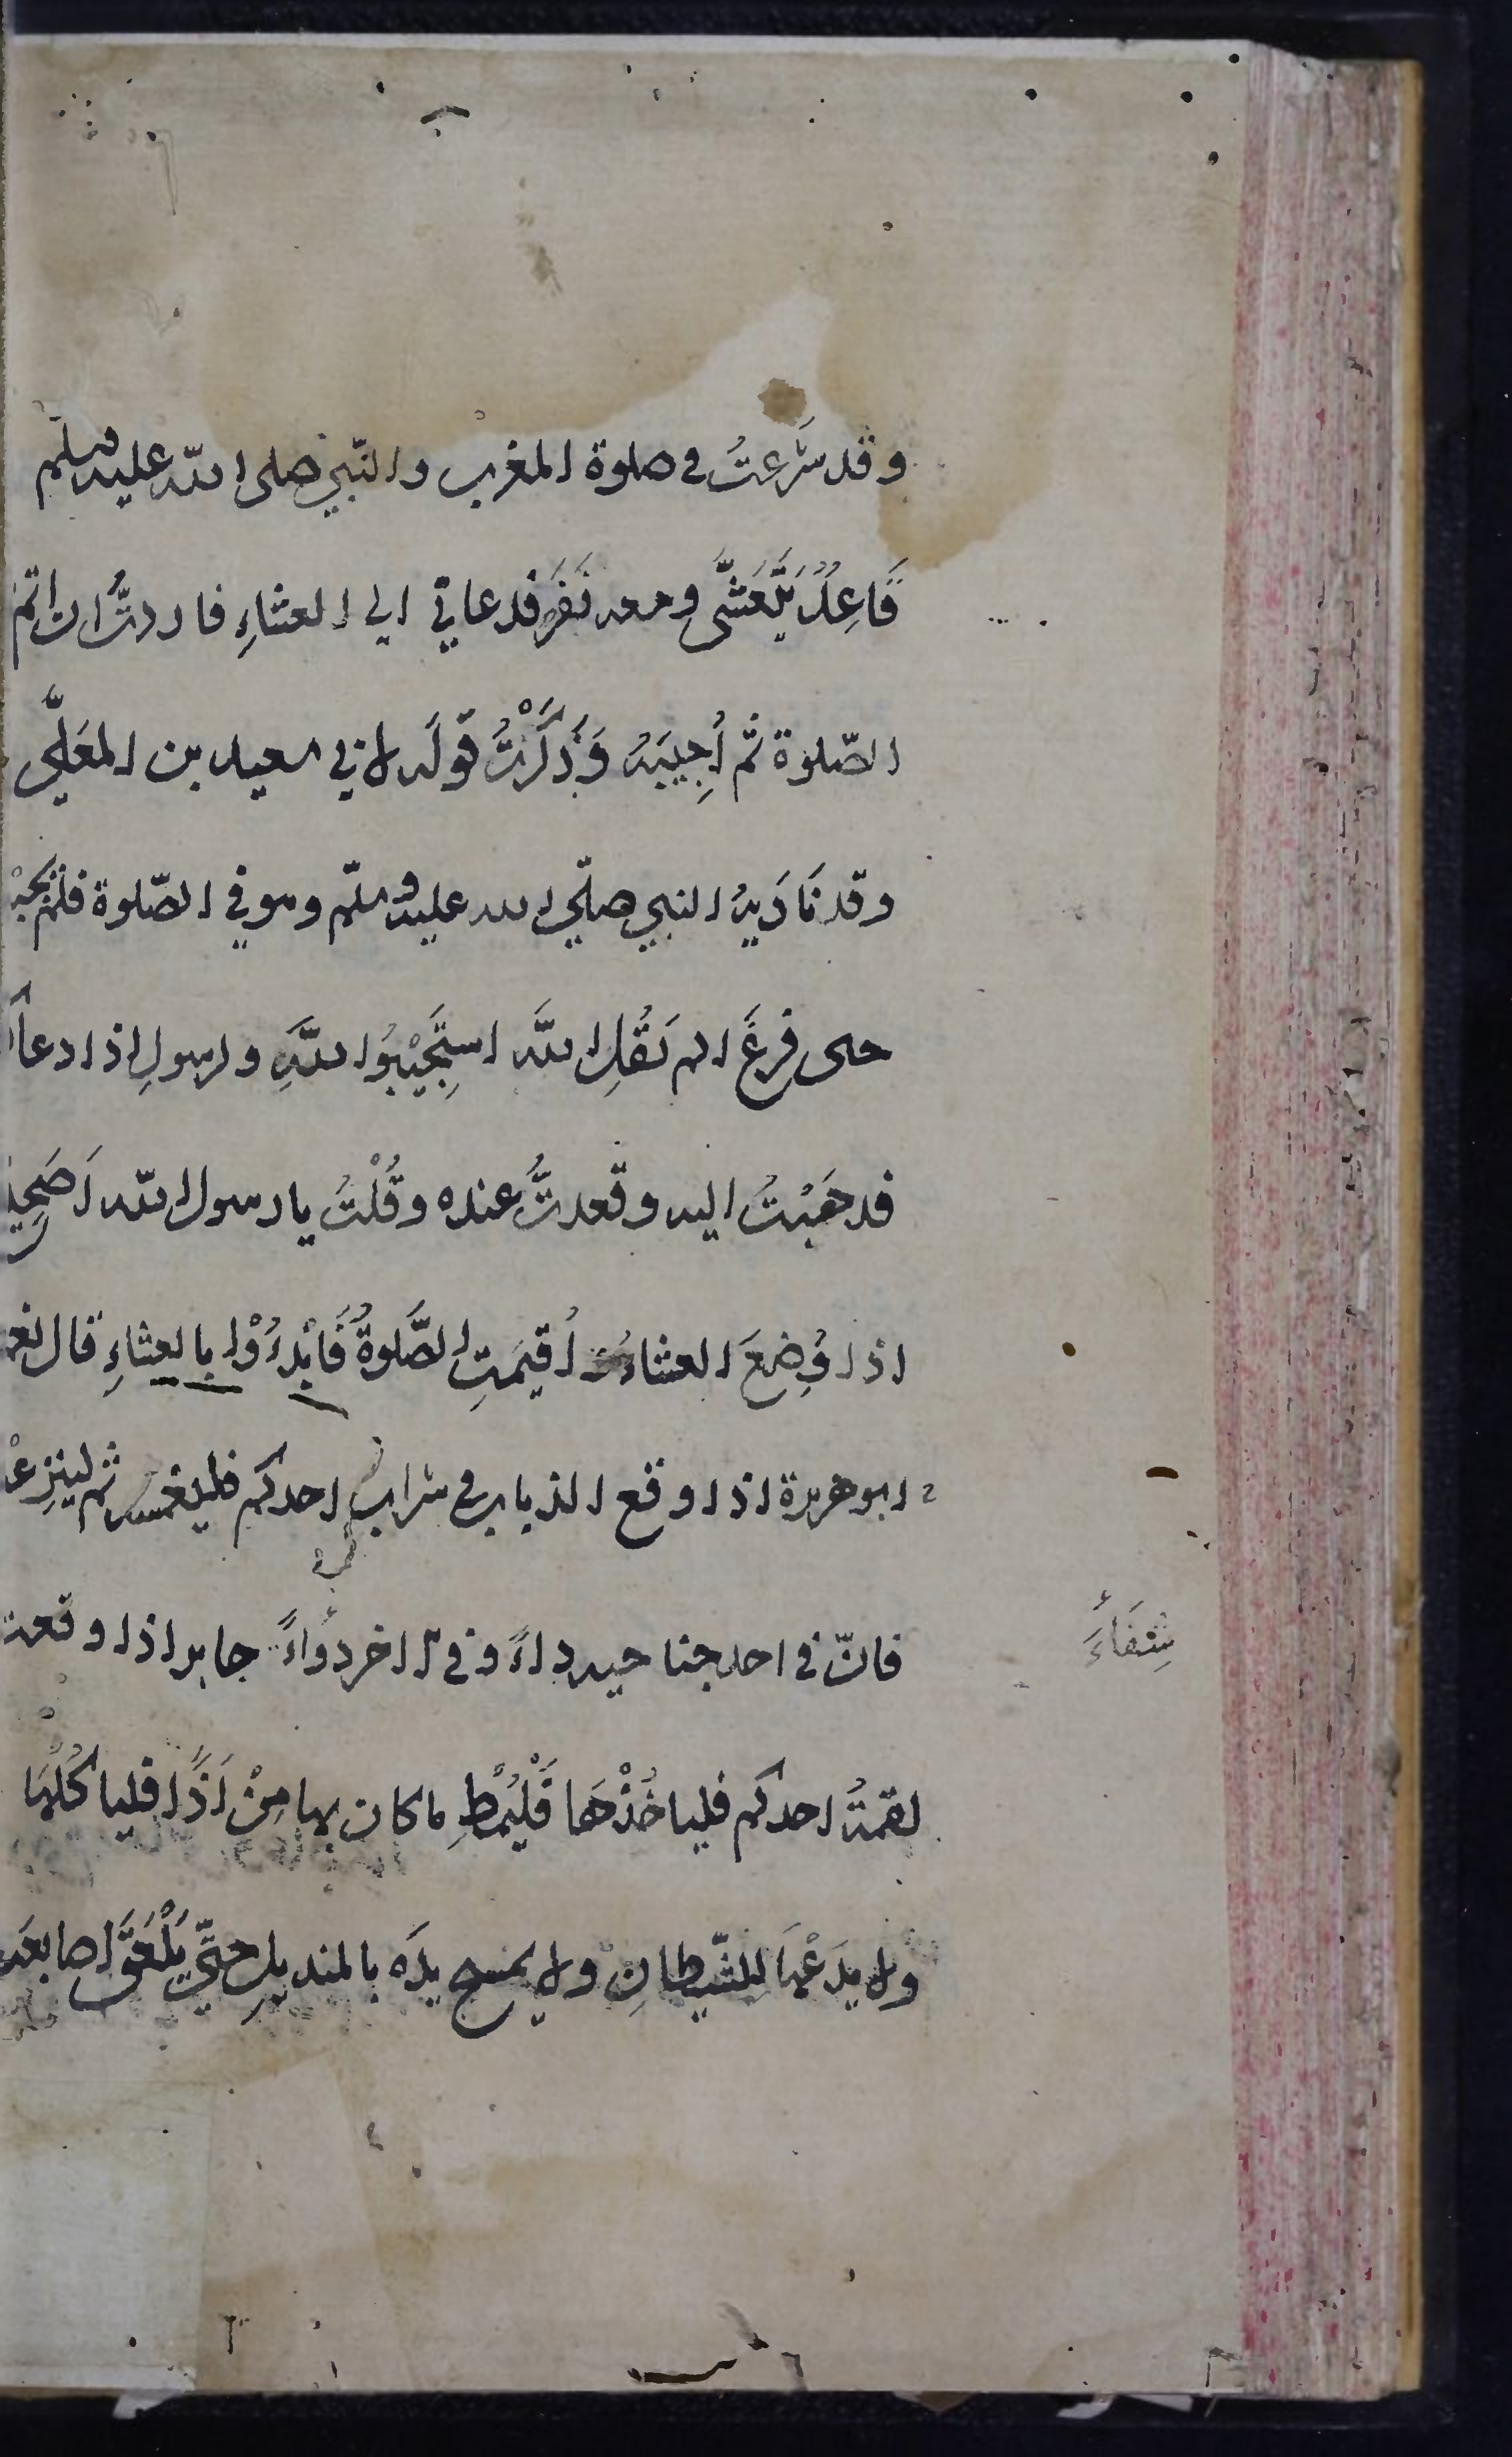 وقد شَرعتُ في صلوة المغرب والنّبيّ صلى الله عليه وسلّم
قَاعِدٌ يَتَعَشَّى ومعه نَفَرٌ فدعاني الي العشاءِ فاردتُّ ان اتم
الصّلوة ثمّ أُجِيبَهُ وَذَكَرْتُ قولَه لابي سعيد بن المعَلّي
وقد نَادَيهُ النبي صلّي الله عليه وسلّم وهو في الصّلوة فلم يُجبْهُ
حتى فرغَ الم يَقُلِ الله استَجِيْبُوا للهِ وللرسولِ اذا دعا
فذهَبْتُ اليه وقعدتُّ عنده وقُلْتُ يا رسول الله اَصَحِيحٌ
اذا وُضِعَ العشاءُ أُقيمَتِ الصَّلوةُ فَابْدءُوْا بالعشاءِ قال نعم
ابو هريرة اذا وقع الذباب في شراب احدكم فليغمسه ثم لينزِعْهُ
فانّ في احد جناحيه داءً وفي الاخر دَواءً جابر اذا وقعت
شِفَاءً
لقمةُ احدكم فلياخُذْهَا فَلْيُمْطِ ما كان بها مِنْ اَذًا فلياكُلْهَا
ولا يدَعْهَا للشّيطانِ ولا يمسح يدَه بالمنديل حتّي يَلْعَقَ اصابعَه